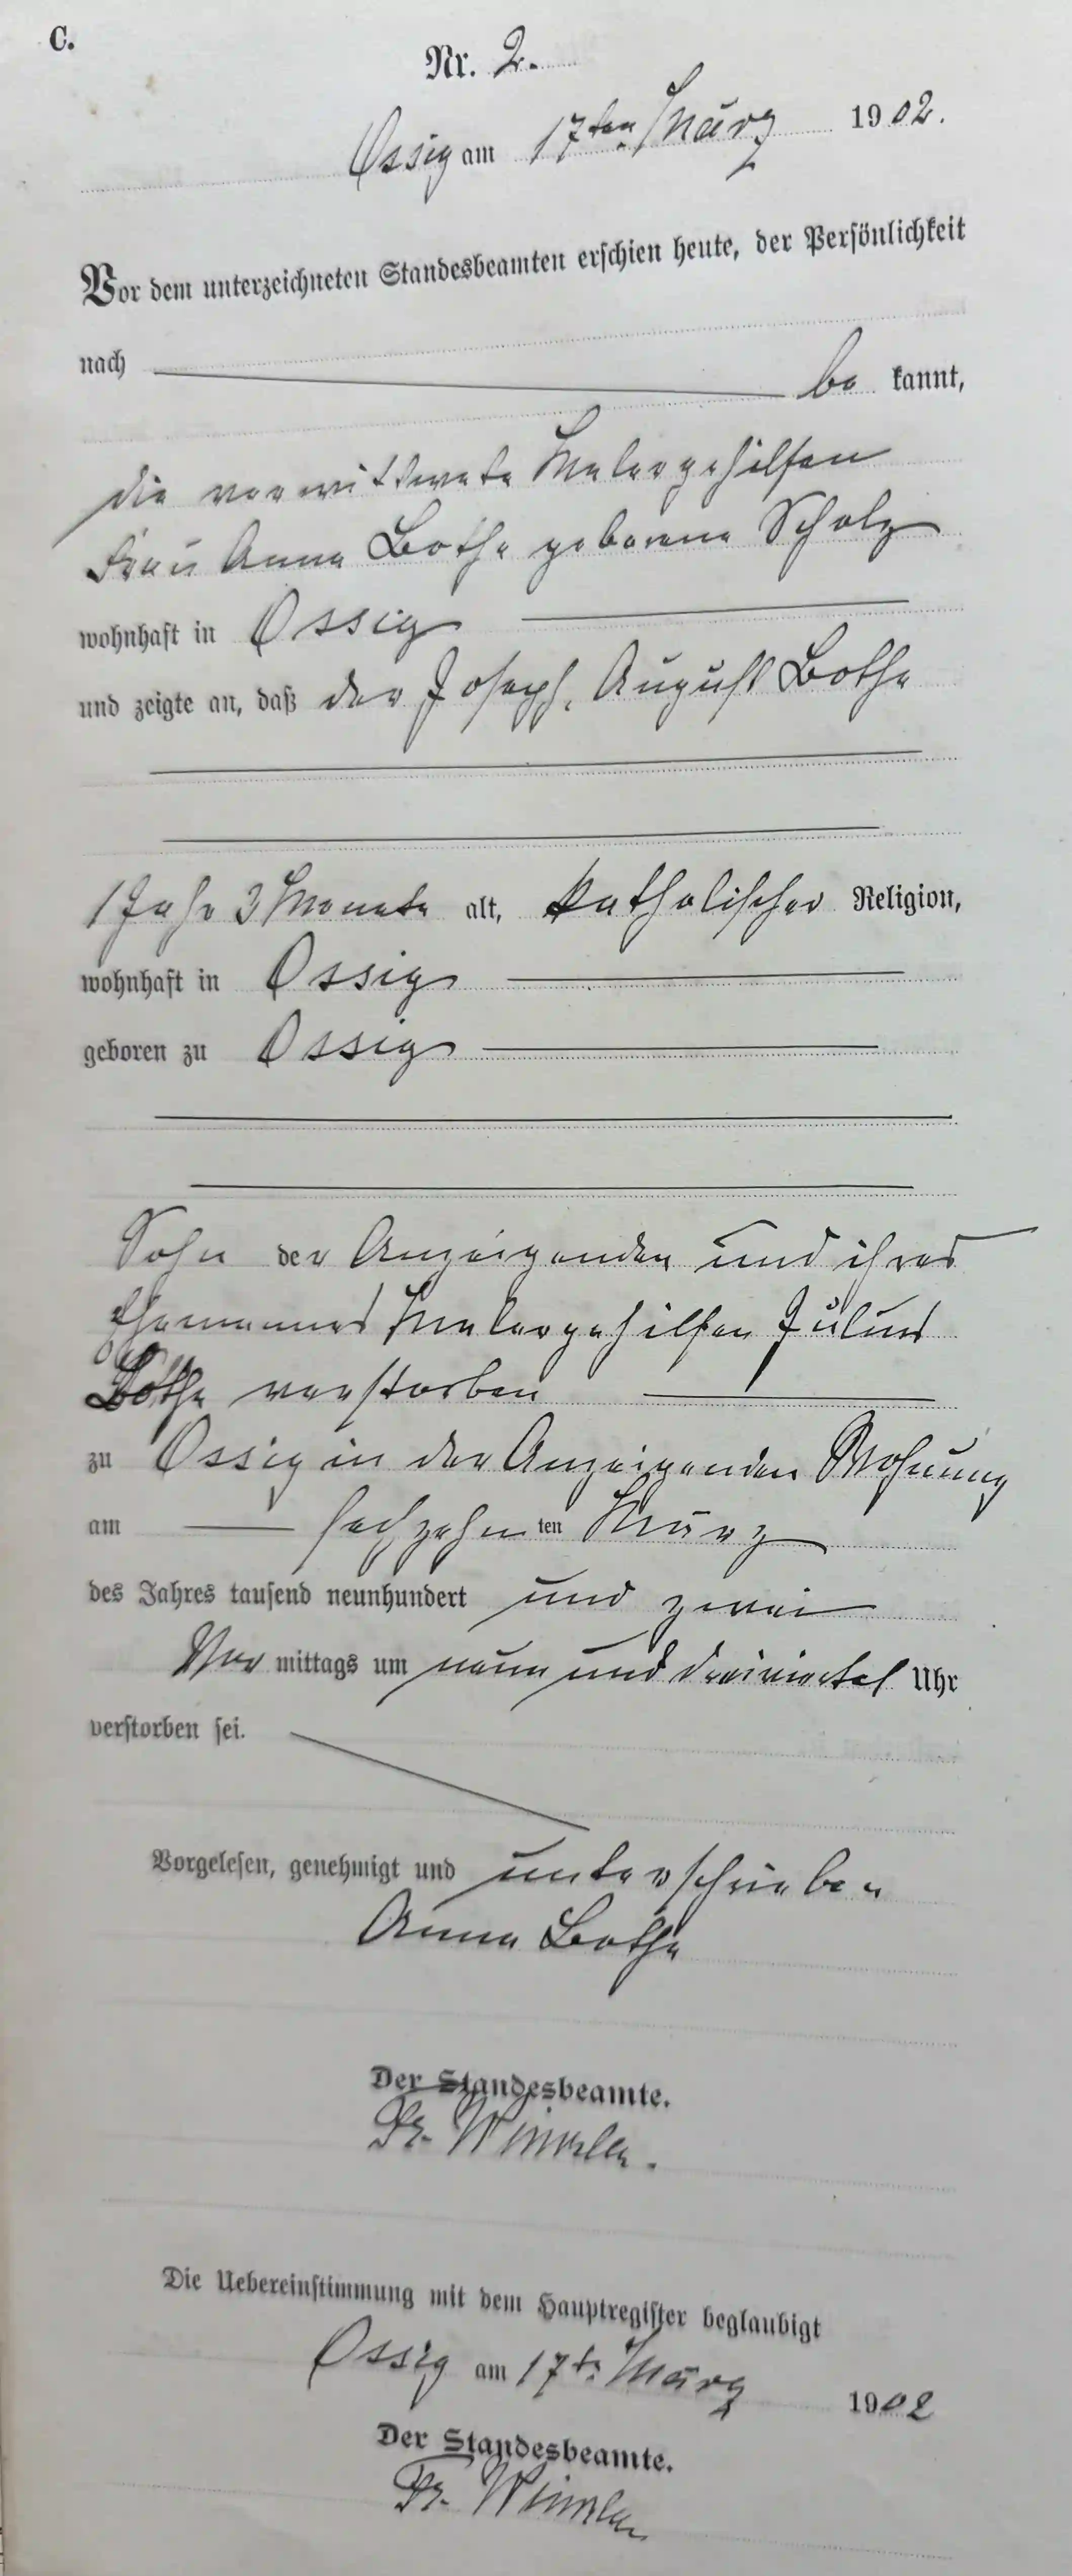 C.
Nr. 2.
Ossig am 17ten März 1902.
Vor dem unterzeichneten Standesbeamten erschien heute, der Persönlichkeit
nach be kannt,
die verwittwete Malergehilfen
Frau Anna Bothe geborene Scholz
wohnhaft in Ossig
und zeigte an, daß der Joseph, August Bothe
1 Jahr 3 Monate alt, katholischer Religion,
wohnhaft in Ossig
geboren zu Ossig
Sohn der Anzeigenden und ihres
Ehemannes Malergehilfen Julius
Bothe verstorben
zu Ossig in der Anzeigenden Wohnung
am sechzehn ten März
des Jahres tausend neunhundert und zwei
Vor mittags um neun und dreiviertel Uhr
verstorben sei.
Vorgelesen, genehmigt und unterschrieben
Anna Bothe
Der Standesbeamte.
Die Uebereinstimmung mit dem Hauptregister beglaubigt
Ossig am 17t. März 1902
Der Standesbeamte.